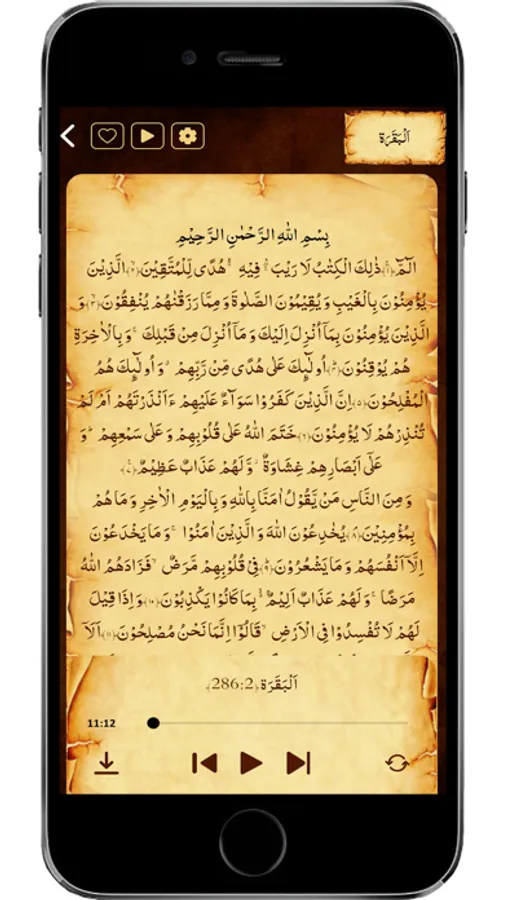 اَلْبَقَرَة
بِسْمِ اللهِ الرَّحْمٰنِ الرَّحِيْمِ
الٓمّٓ ﴿۱﴾ ذٰلِكَ الْكِتٰبُ لَا رَيْبَ ۛ فِيْهِ ۛ هُدًى لِّلْمُتَّقِيْنَ ﴿۲﴾ الَّذِيْنَ
يُؤْمِنُوْنَ بِالْغَيْبِ وَ يُقِيْمُوْنَ الصَّلٰوةَ وَ مِمَّا رَزَقْنٰهُمْ يُنْفِقُوْنَ ﴿۳﴾ وَ
الَّذِيْنَ يُؤْمِنُوْنَ بِمَاۤ اُنْزِلَ اِلَيْكَ وَ مَاۤ اُنْزِلَ مِنْ قَبْلِكَ ۚ وَ بِالْاٰخِرَةِ
هُمْ يُوْقِنُوْنَ ﴿۴﴾ اُولٰٓئِكَ عَلٰى هُدًى مِّنْ رَّبِّهِمْ ۗ وَ اُولٰٓئِكَ هُمُ
الْمُفْلِحُوْنَ ﴿۵﴾ اِنَّ الَّذِيْنَ كَفَرُوْا سَوَآءٌ عَلَيْهِمْ ءَاَنْذَرْتَهُمْ اَمْ لَمْ
تُنْذِرْهُمْ لَا يُؤْمِنُوْنَ ﴿۶﴾ خَتَمَ اللهُ عَلٰى قُلُوْبِهِمْ وَ عَلٰى سَمْعِهِمْ ؕ وَ
عَلٰۤى اَبْصَارِهِمْ غِشَاوَةٌ ۫ وَّ لَهُمْ عَذَابٌ عَظِيْمٌ ﴿۷﴾
وَ مِنَ النَّاسِ مَنْ يَّقُوْلُ اٰمَنَّا بِاللهِ وَ بِالْيَوْمِ الْاٰخِرِ وَ مَا هُمْ
بِمُؤْمِنِيْنَ ﴿۸﴾ يُخٰدِعُوْنَ اللهَ وَ الَّذِيْنَ اٰمَنُوْا ۚ وَ مَا يَخْدَعُوْنَ
اِلَّاۤ اَنْفُسَهُمْ وَ مَا يَشْعُرُوْنَ ﴿۹﴾ فِيْ قُلُوْبِهِمْ مَّرَضٌ ۙ فَزَادَهُمُ اللهُ
مَرَضًا ۚ وَ لَهُمْ عَذَابٌ اَلِيْمٌۢ ۙ بِمَا كَانُوْا يَكْذِبُوْنَ ﴿۱۰﴾ وَ اِذَا قِيْلَ
لَهُمْ لَا تُفْسِدُوْا فِي الْاَرْضِ ۙ قَالُوْۤا اِنَّمَا نَحْنُ مُصْلِحُوْنَ ﴿۱۱﴾ اَلَاۤ
اَلْبَقَرَة ﴿286:2﴾
11:12